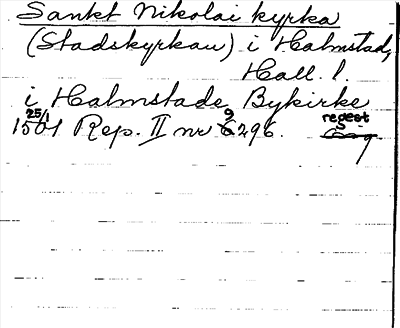 Sankt Nikolai kyrka
(Stadskyrkan) i Halmstad,
Hall. l.
i Halmstade Bykirke
25/1 1501 Rep. II nr 9296. regest